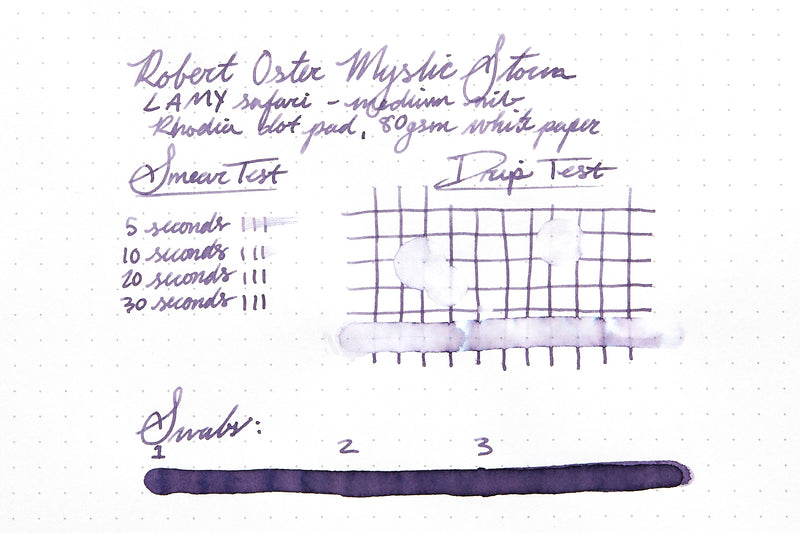 Robert Oster Mystic Storm
LAMY safari - medium nib
Rhodia dot pad, 80gsm white paper
Smear Test
Drip Test
5 seconds
10 seconds
20 seconds
30 seconds
Swabs:
1 2 3